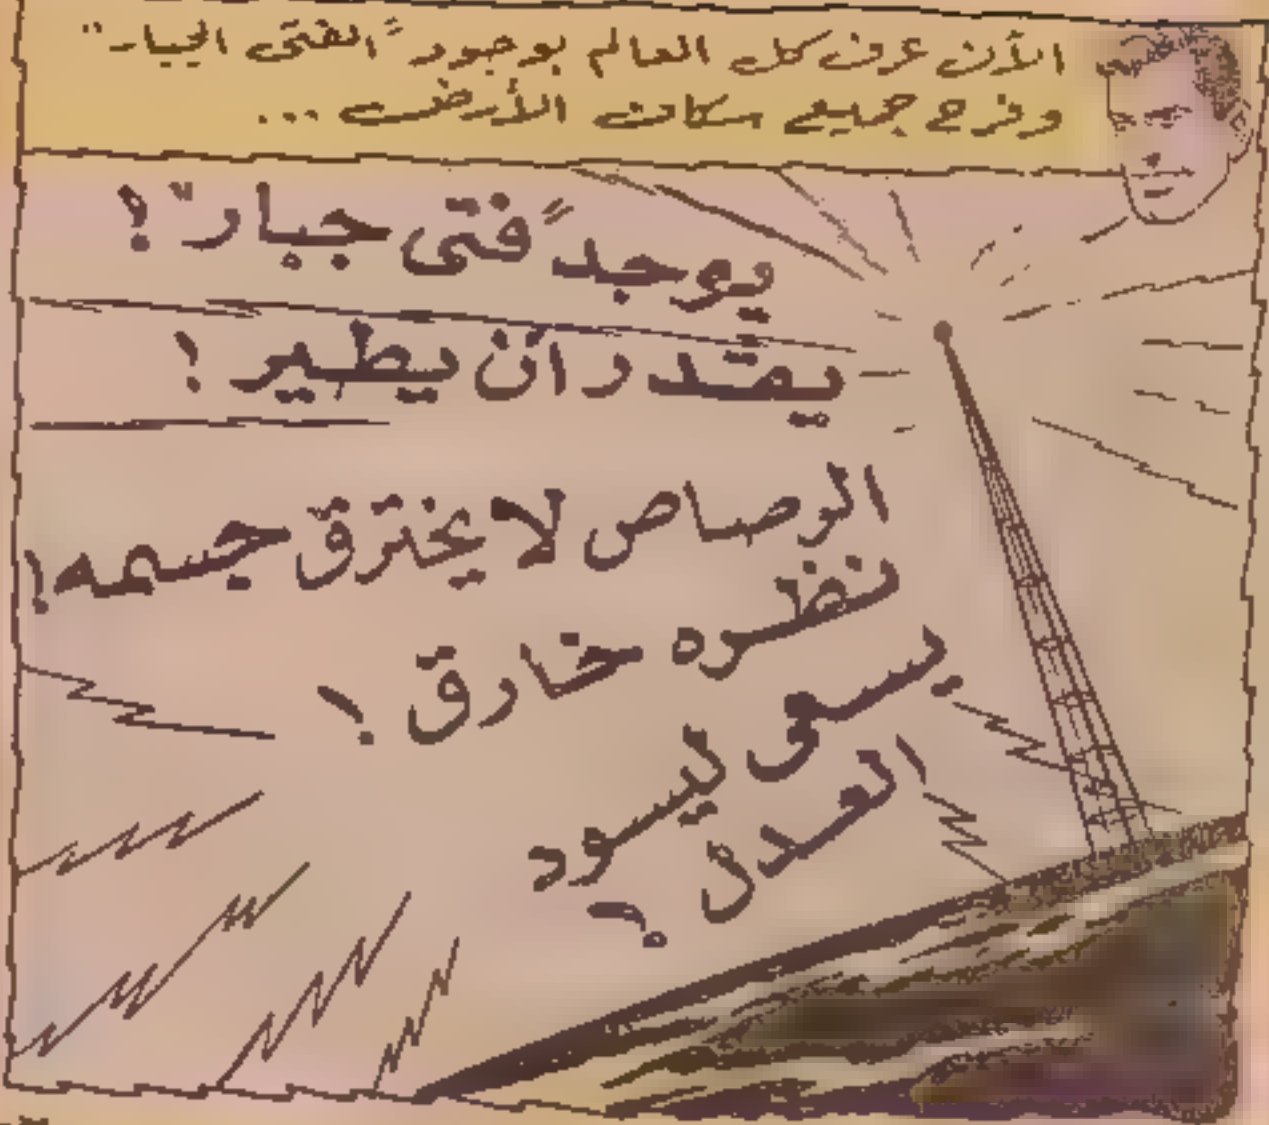 الآن عرف كل العالم بوجود "الفتى الجبار"
وفرح جميع سكان الأرض ...
يوجد "فتى جبار"!
يقدر أن يطير!
الرصاص لا يخترق جسمه!
نظره خارق!
يسعى ليسود
العدل!